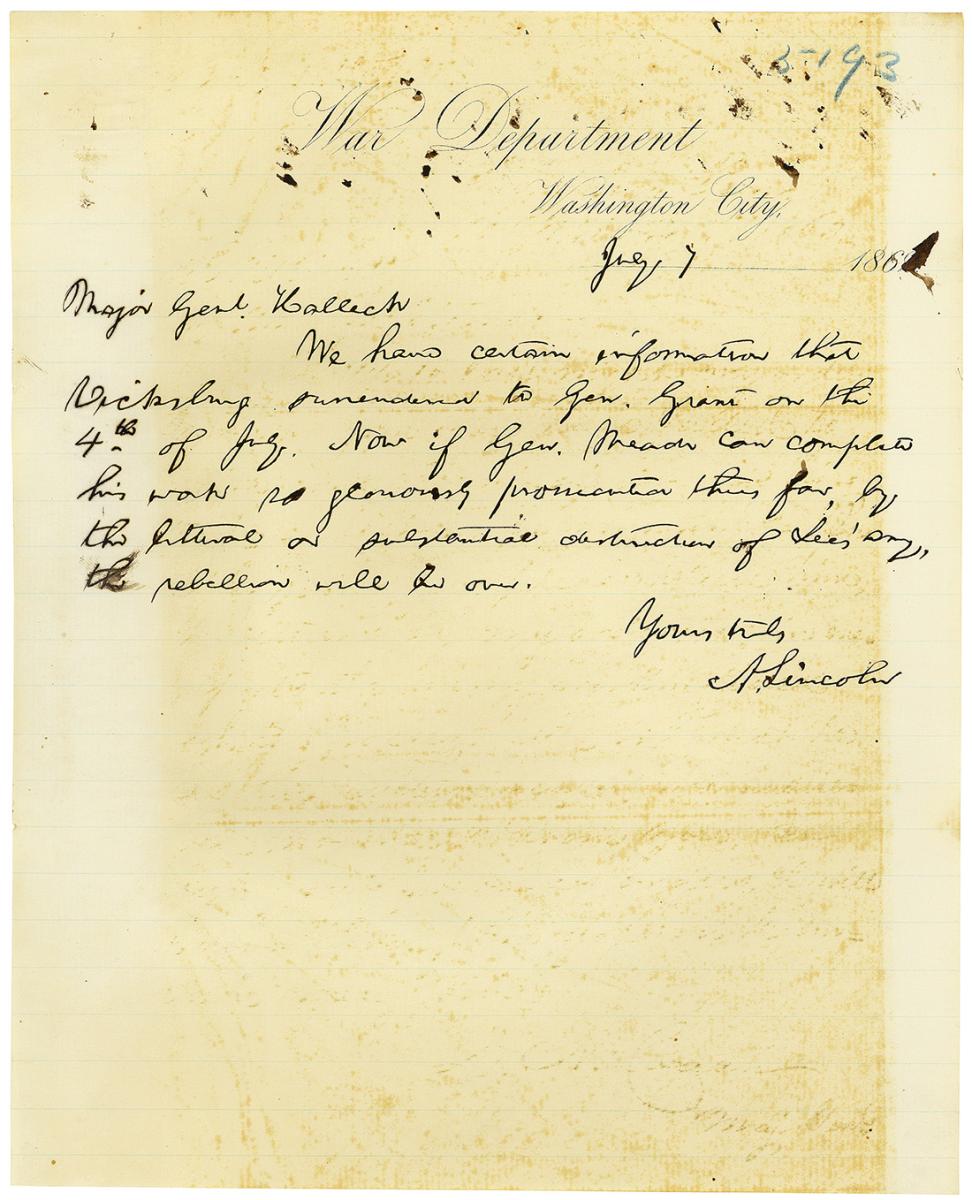 5193
War Department
Washington City,
July 7 186
Major Genl. Halleck
We have certain information that
Vicksburg surrendered to Gen. Grant on the
4th of July. Now if Gen. Meade can complete
his work so gloriously prosecuted thus far, by
the litteral or substantial destruction of Lee's army,
the rebellion will be over.
Yours truly
A. Lincoln